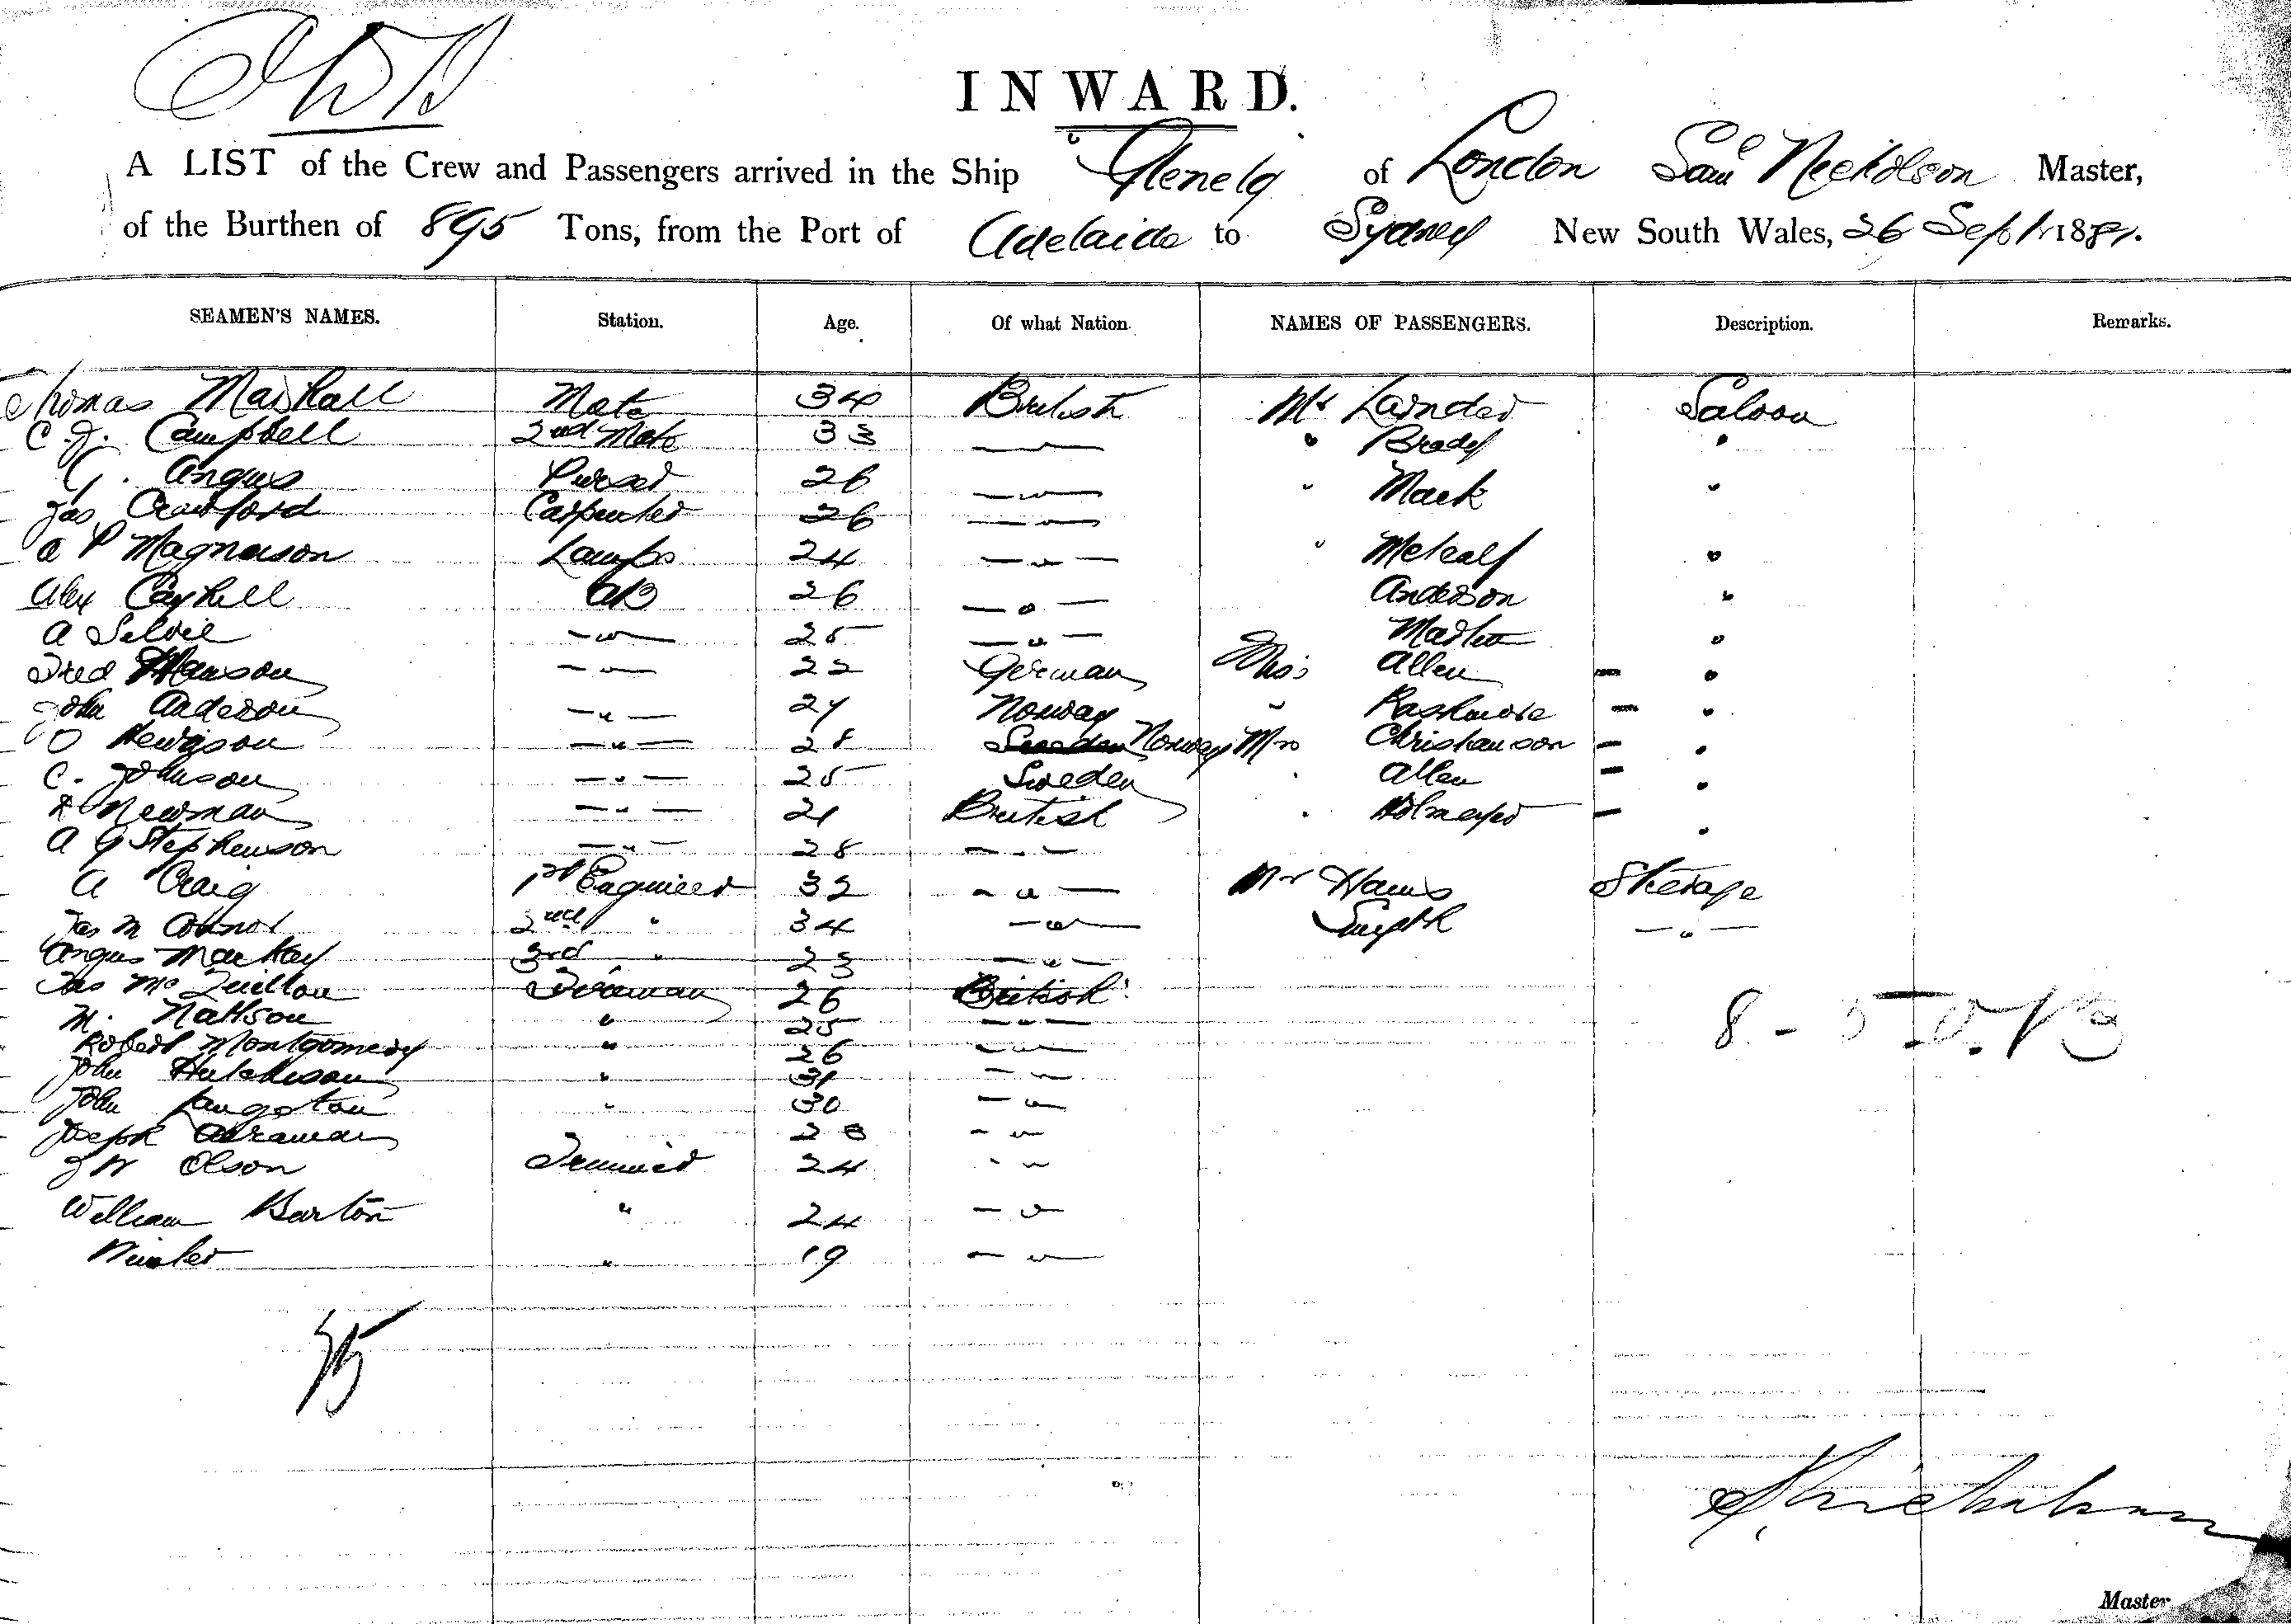 INWARD.
A LIST of the Crew and Passengers arrived in the Ship "Glenelg of London Saml Nicholson Master,
of the Burthen of 895 Tons, from the Port of Adelaide to Sydney New South Wales, 26 Septr 188
SEAMEN'S NAMES. Station. Age. Of what Nation. NAMES OF PASSENGERS. Description. Remarks.
Thomas Marshall Mate 34 British Mr Saloon
C. J. Campbell 2nd Mate 33 — " Brady "
G. Angus Purser 26 — " — " Mack "
Jas Crawford Carpenter 26 — " —
A P Magnuson Lamps 24 — " — " Metcalf "
Alex Cayhill AB 26 — " — Anderson "
A Selvie — " — 25 — " — Martin "
Fred Hanson — " — 22 German Miss Allen — "
John Anderson — " — 24 Norway " Pashmore — "
O — " — 28 Sweden Norway Mrs Christianson — "
C. Johnson — " — 25 Sweden " Allen — "
Newman — " — 21 British " —
A G Stephenson — " — 28 — " — "
A Craig 1st Engineer 32 — " — Mr Steerage
Jas M Connor 2nd " 34 — " — Smyth — " —
Angus Mackay 3rd " 23 — " —
Jas McQuillan Fireman 26 British
M. Nattson " 25 — " —
Robert Montgomery " 26 — " —
John Hutchison " 31 — " —
John Langstan " 30 — " —
Joseph Abraman 28 — " —
J W Olson Trimmer 24 " —
William Barton " 24 — " —
" 19 — " —
Master